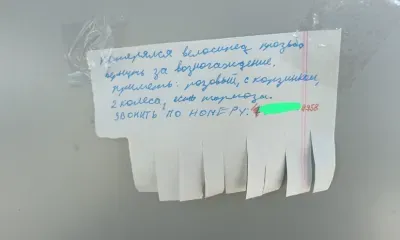 Потерялся велосипед прозьба
вернуть за вознаграждение.
Приметы: розовый, с корзинкой,
2 колеса, есть тормоза.
ЗВОНИТЬ ПО НОМЕРУ: